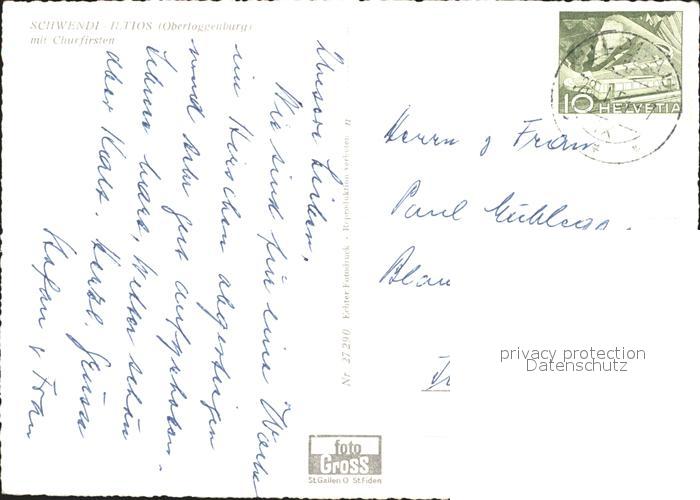 SCHWENDI - ILTIOS (Obertoggenburg)
mit Churfirsten
Unsere Lieben,
Wir sind für eine Woche
im Hirschen abgestiegen
und sehr gut aufgehoben.
Schnee Wetter schön
aber kalt. Herzl. Grüsse
Stefan & Frau
Nr 27290 Echter Fotodruck - Reproduktion verboten II
10 HELVETIA
Herrn & Frau
Paul
Blau
privacy protection
Datenschutz
foto
Gross
St.Gallen O St.Fiden